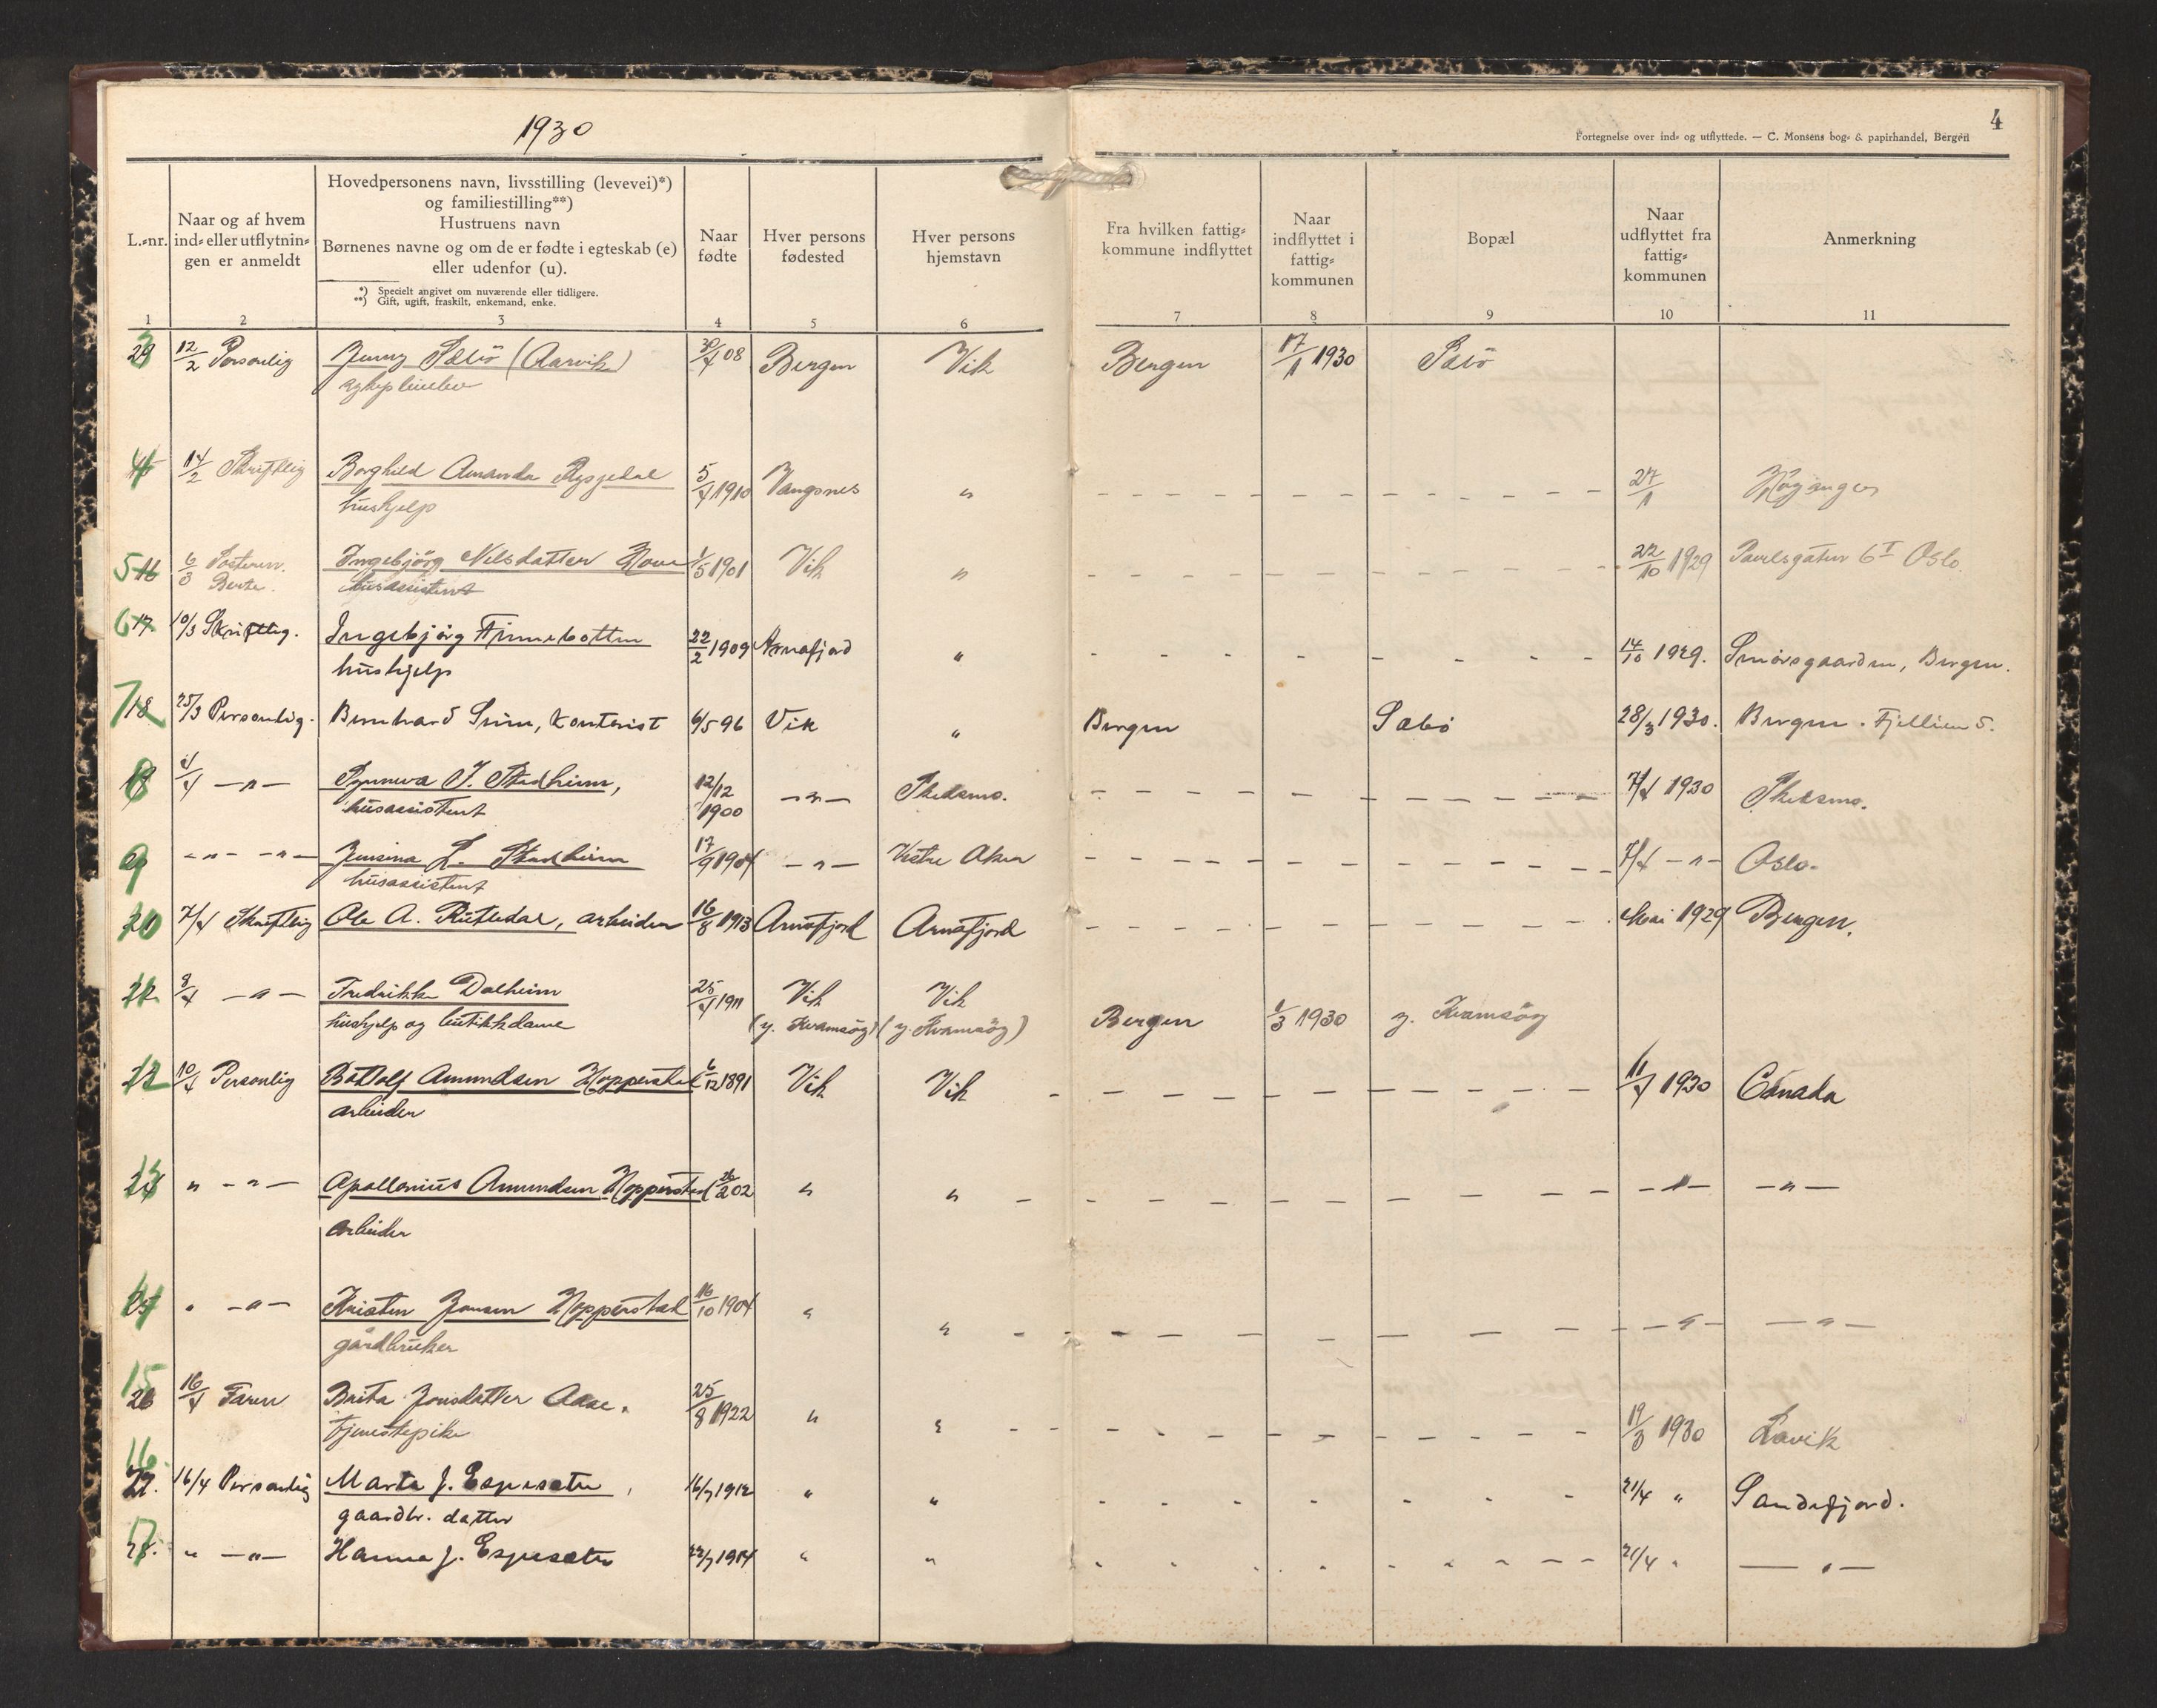 1930
4
Fortegnelse over ind- og utflyttede. — C. Monsens bog- & papirhandel, Bergen
L.-nr.
Naar og af hvem
ind- eller utflytnin-
gen er anmeldt
Hovedpersonens navn, livsstilling (levevei)*)
og familiestilling**)
Hustruens navn
Børnenes navne og om de er fødte i egteskab (e)
eller udenfor (u).
*) Specielt angivet om nuværende eller tidligere.
**) Gift, ugift, fraskilt, enkemand, enke.
Naar
fødte
Hver persons
fødested
Hver persons
hjemstavn
Fra hvilken fattig-
kommune indflyttet
Naar
indflyttet i
fattig-
kommunen
Bopæl
Naar
udflyttet fra
fattig-
kommunen
Anmerkning
1 2 3 4 5 6 7 8 9 10 11
3 12/2 Personlig Jenny Sæbö (Aarvik) 30/4 08 Bergen Vik Bergen 17/1 1930 Sæbö
4 14/2 Skriftlig Borghild Amanda 5/4 1910 Vangsnes " 27/1 Höyanger
hushjelp
5 16 6/3 Ingebjörg Nilsdatter Hove 1/5 1901 Vik " 22/10 1929 6 I Oslo.
husassistent
6 17 10/3 Skriftlig. Ingebjørg Finnebotten 22/2 1909 Arnafjord " 14/10 1929. Smörsgaarden, Bergen.
hushjelp
7 18 25/3 Personlig. Bernhard Sum, Kontorist 6/5 96 Vik " Bergen Sæbö 28/3 1930. Bergen. Fjellien 5.
8 4/4 —"— Synneva J. Stadheim, 12/12 1900 —"— Skedsmo. 7/4 1930 Skedsmo.
husassistent
9 —"— —"— Jensina L. Stadheim 17/9 1904 —"— Vestre Aker 7/4 —"— Oslo.
husassistent
10 7/4 Skriftlig Ole A. Rutledal, arbeider 16/8 1913 Arnafjord Arnafjord Mai 1929 Bergen.
8/4 —"— Fredrikke Dalheim 25/4 1911 Vik Vik
hushjelp og butikkdame (y. Kvamsöy) (y. Kvamsöy) Bergen 1/3 1930 y. Kvamsöy
12 10/4 Personlig Botolf Amundsen Hopperstad 6/12 1891 Vik Vik 11/4 1930 Canada
arbeider
13 " —"— Apollonius Amundsen Hopperstad 26/2 02 " " —"— —"—
arbeider
14 " —"— Kristen Jonsen Hopperstad 16/10 1904 " " —"— —"—
gårdbruker
15 26 16/4 Faren Brita Jonsdatter Aase. 25/8 1922 " " 19/3 1930 Lavik
tjenestepike
16 27. 16/4 Personlig Marta J. Espeseter 16/7 1912 " " 21/4 " Sandefjord.
gaardbr. datter
17 28. " —"— Hanna J. Espeseter 22/7 1914 " " 21/4 " —"—